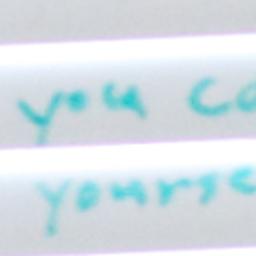 you co
yourse